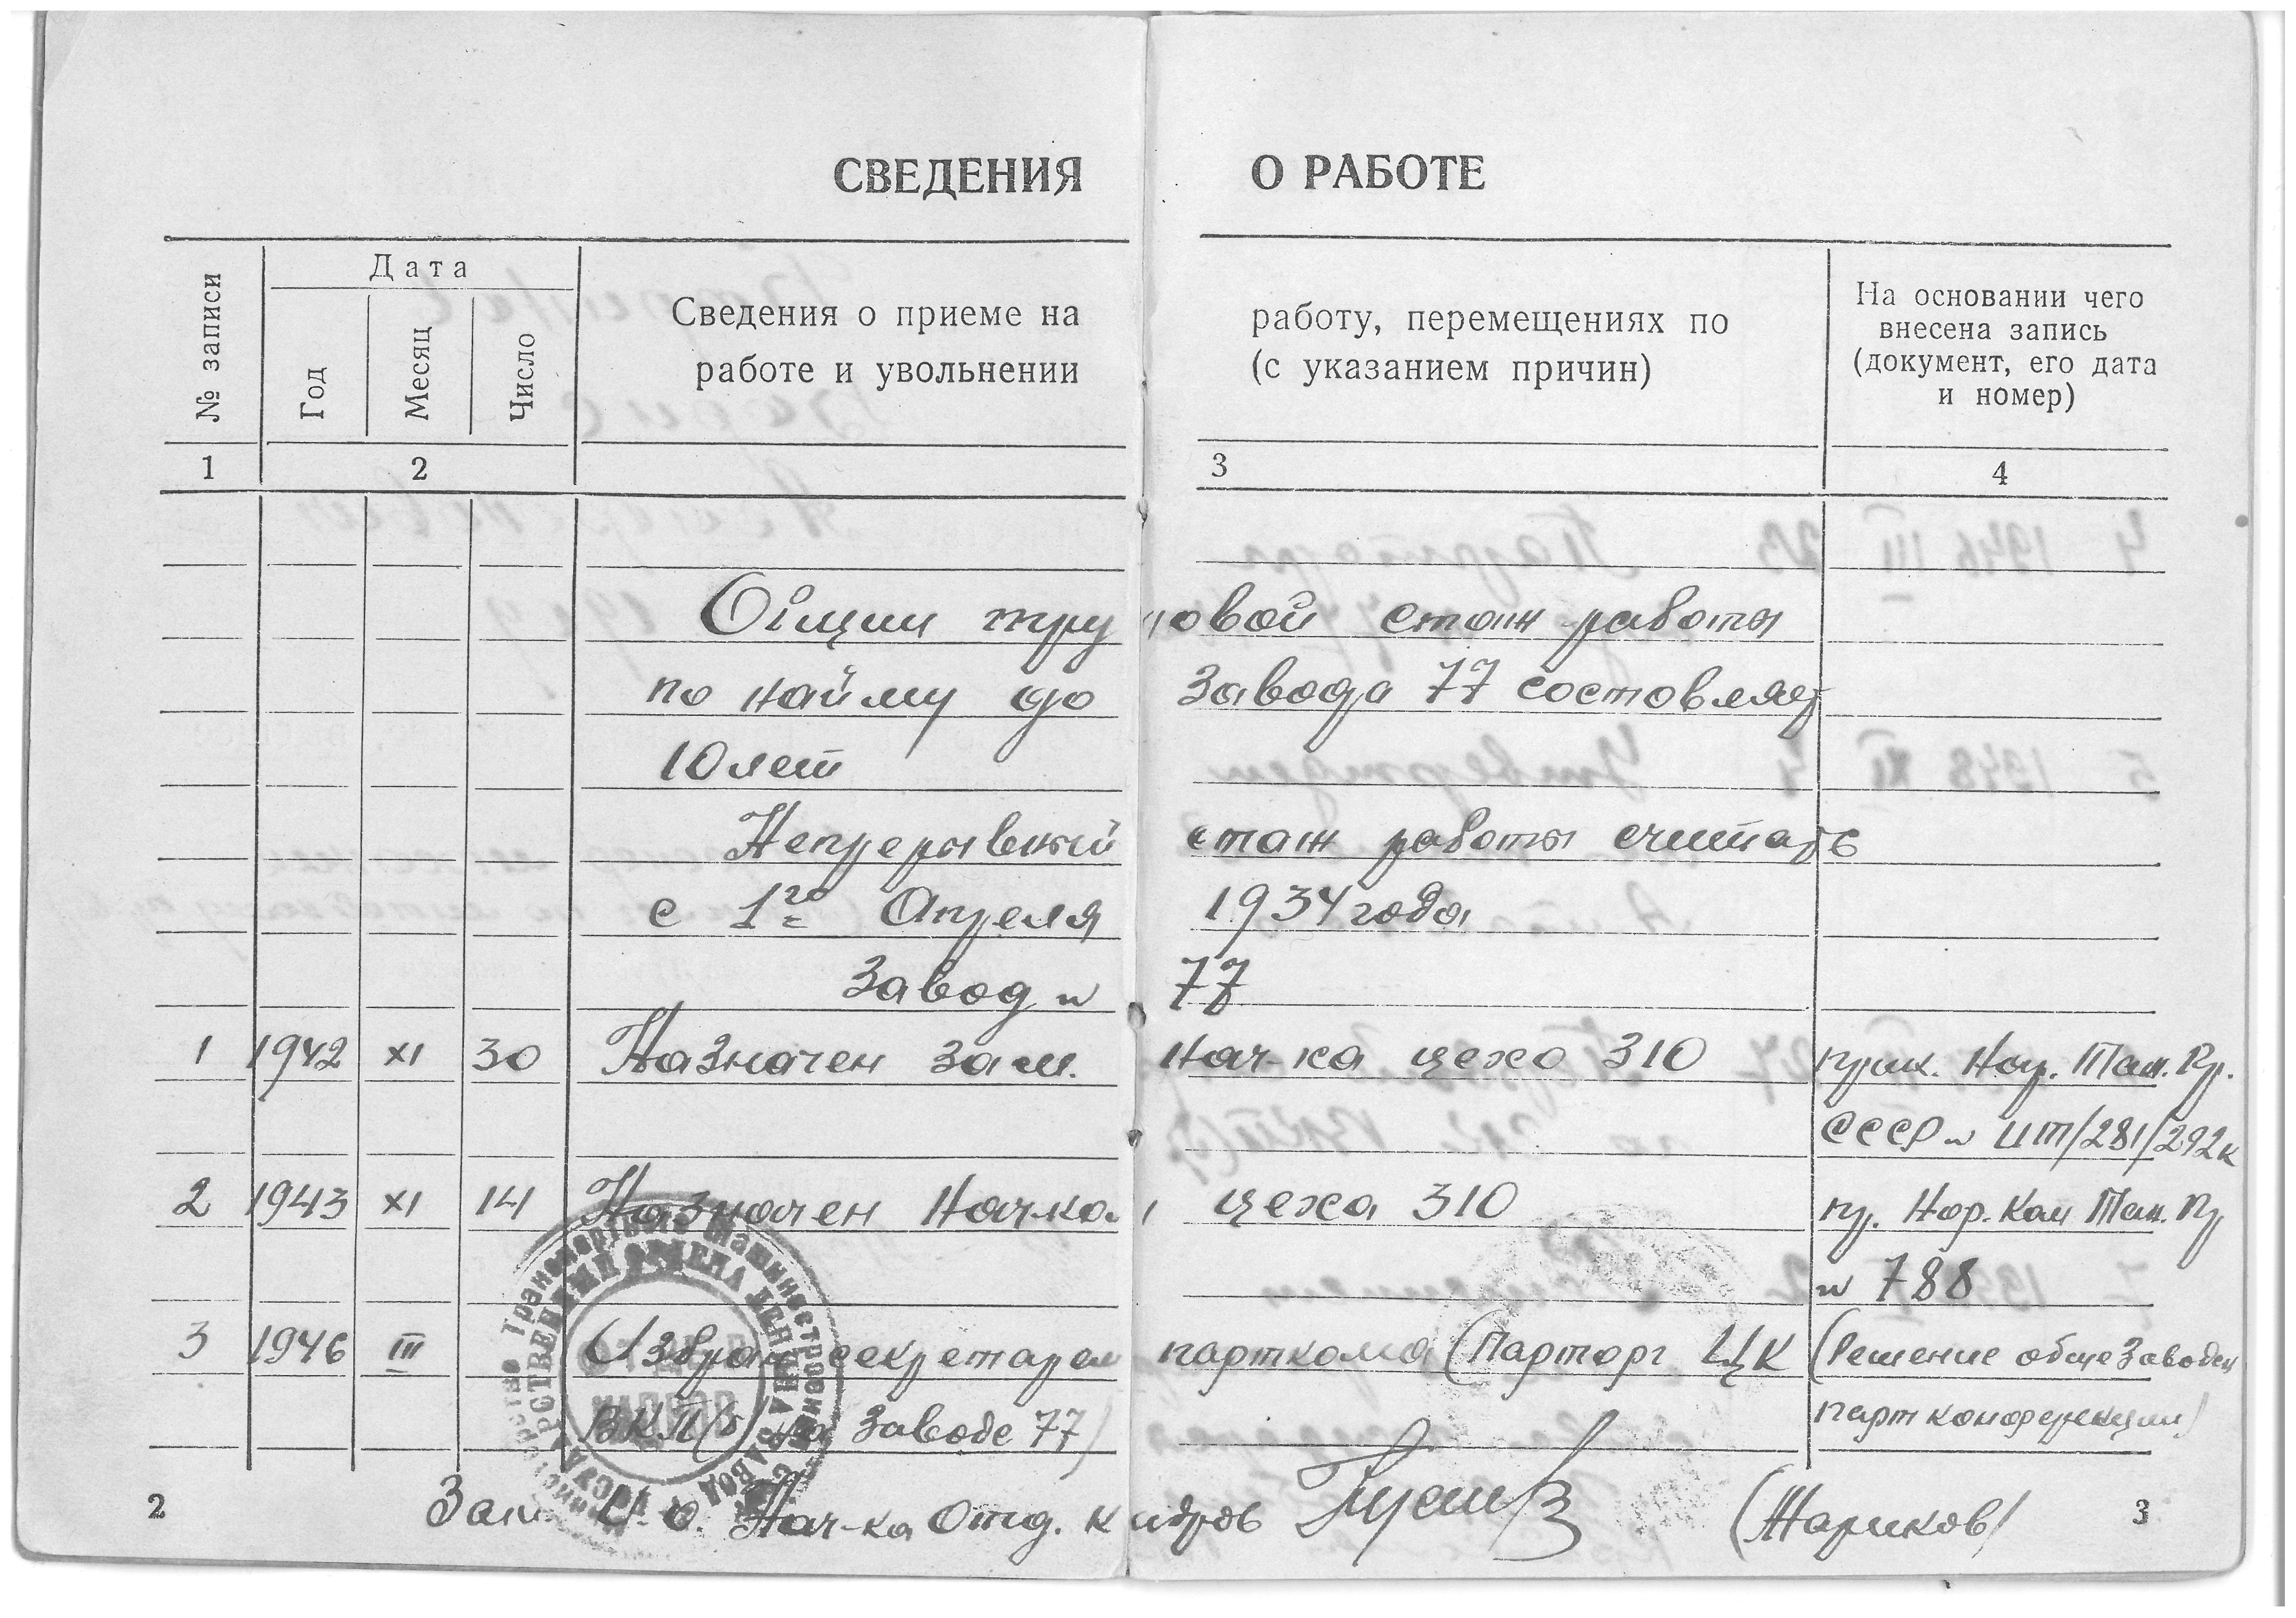 СВЕДЕНИЯ О РАБОТЕ
№ записи
Дата
Год
Месяц
Число
Сведения о приеме на работу, перемещениях по
работе и увольнении (с указанием причин)
На основании чего
внесена запись
(документ, его дата
и номер)
1 2 3 4
Общий трудовой стаж работы
по найму до завода 77 составляет
10 лет
Непрерывный стаж работы считать
с 1го Апреля 1934 года
Завод № 77
1 1942 XI 30 Назначен зам. нач-ка цеха 310 прик. Нар. Тан. Пр.
СССР № ИТ/281/292к
2 1943 XI 14 Назначен Нач-ком цеха 310 пр. Нар. Ком Тан. Пр
№ 788
3 1946 III Избран секретарем парткома (Парторг ЦК (Решение общезаводск
ВКП/б/ на заводе 77) партконференции)
Зам. И.о. Нач-ка Отд. кадров (Жариков)
2 3